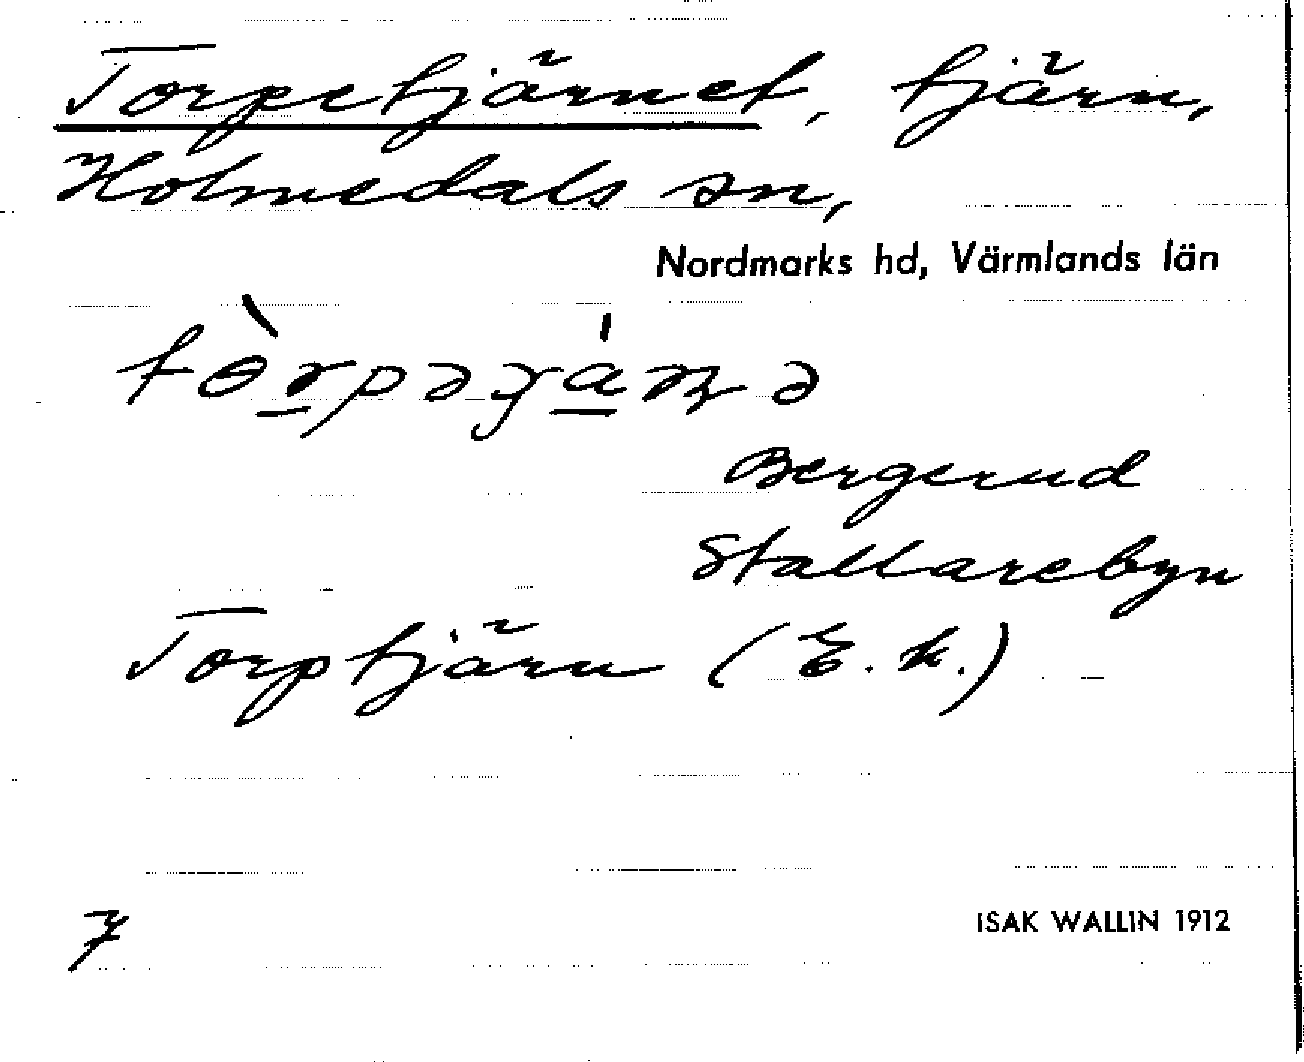 Torpetjärnet, tjärn,
Holmedals sn,
Nordmarks hd, Värmlands län
Bergerud
Stallarebyn
Torptjärn (E. k.)
7
ISAK WALLIN 1912